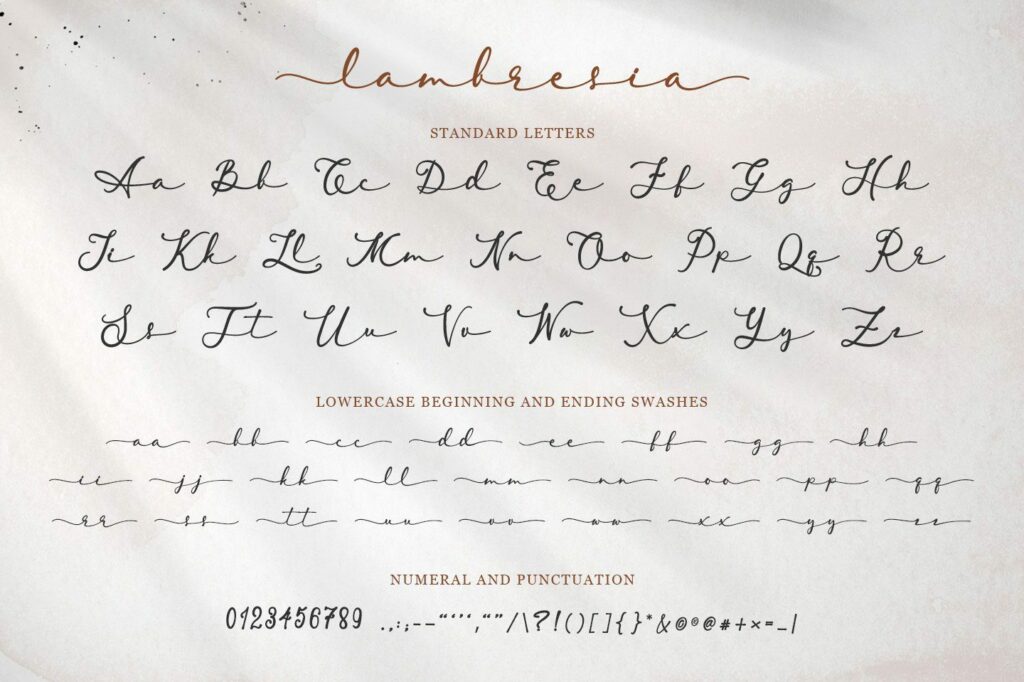 lambresia
STANDARD LETTERS
Aa Bb Cc Dd Ee Ff Gg Hh
Ii Kk Ll Mm Nn Oo Pp Qq Rr
Ss Tt Uu Vv Ww Xx Yy Zz
LOWERCASE BEGINNING AND ENDING SWASHES
aa bb cc dd ee ff gg hh
ii jj kk ll mm nn oo pp qq
rr ss tt uu vv ww xx yy zz
NUMERAL AND PUNCTUATION
0123456789 .,:;--“‘’‘,“”/\?!()[]{}*&©®@#+×=_|